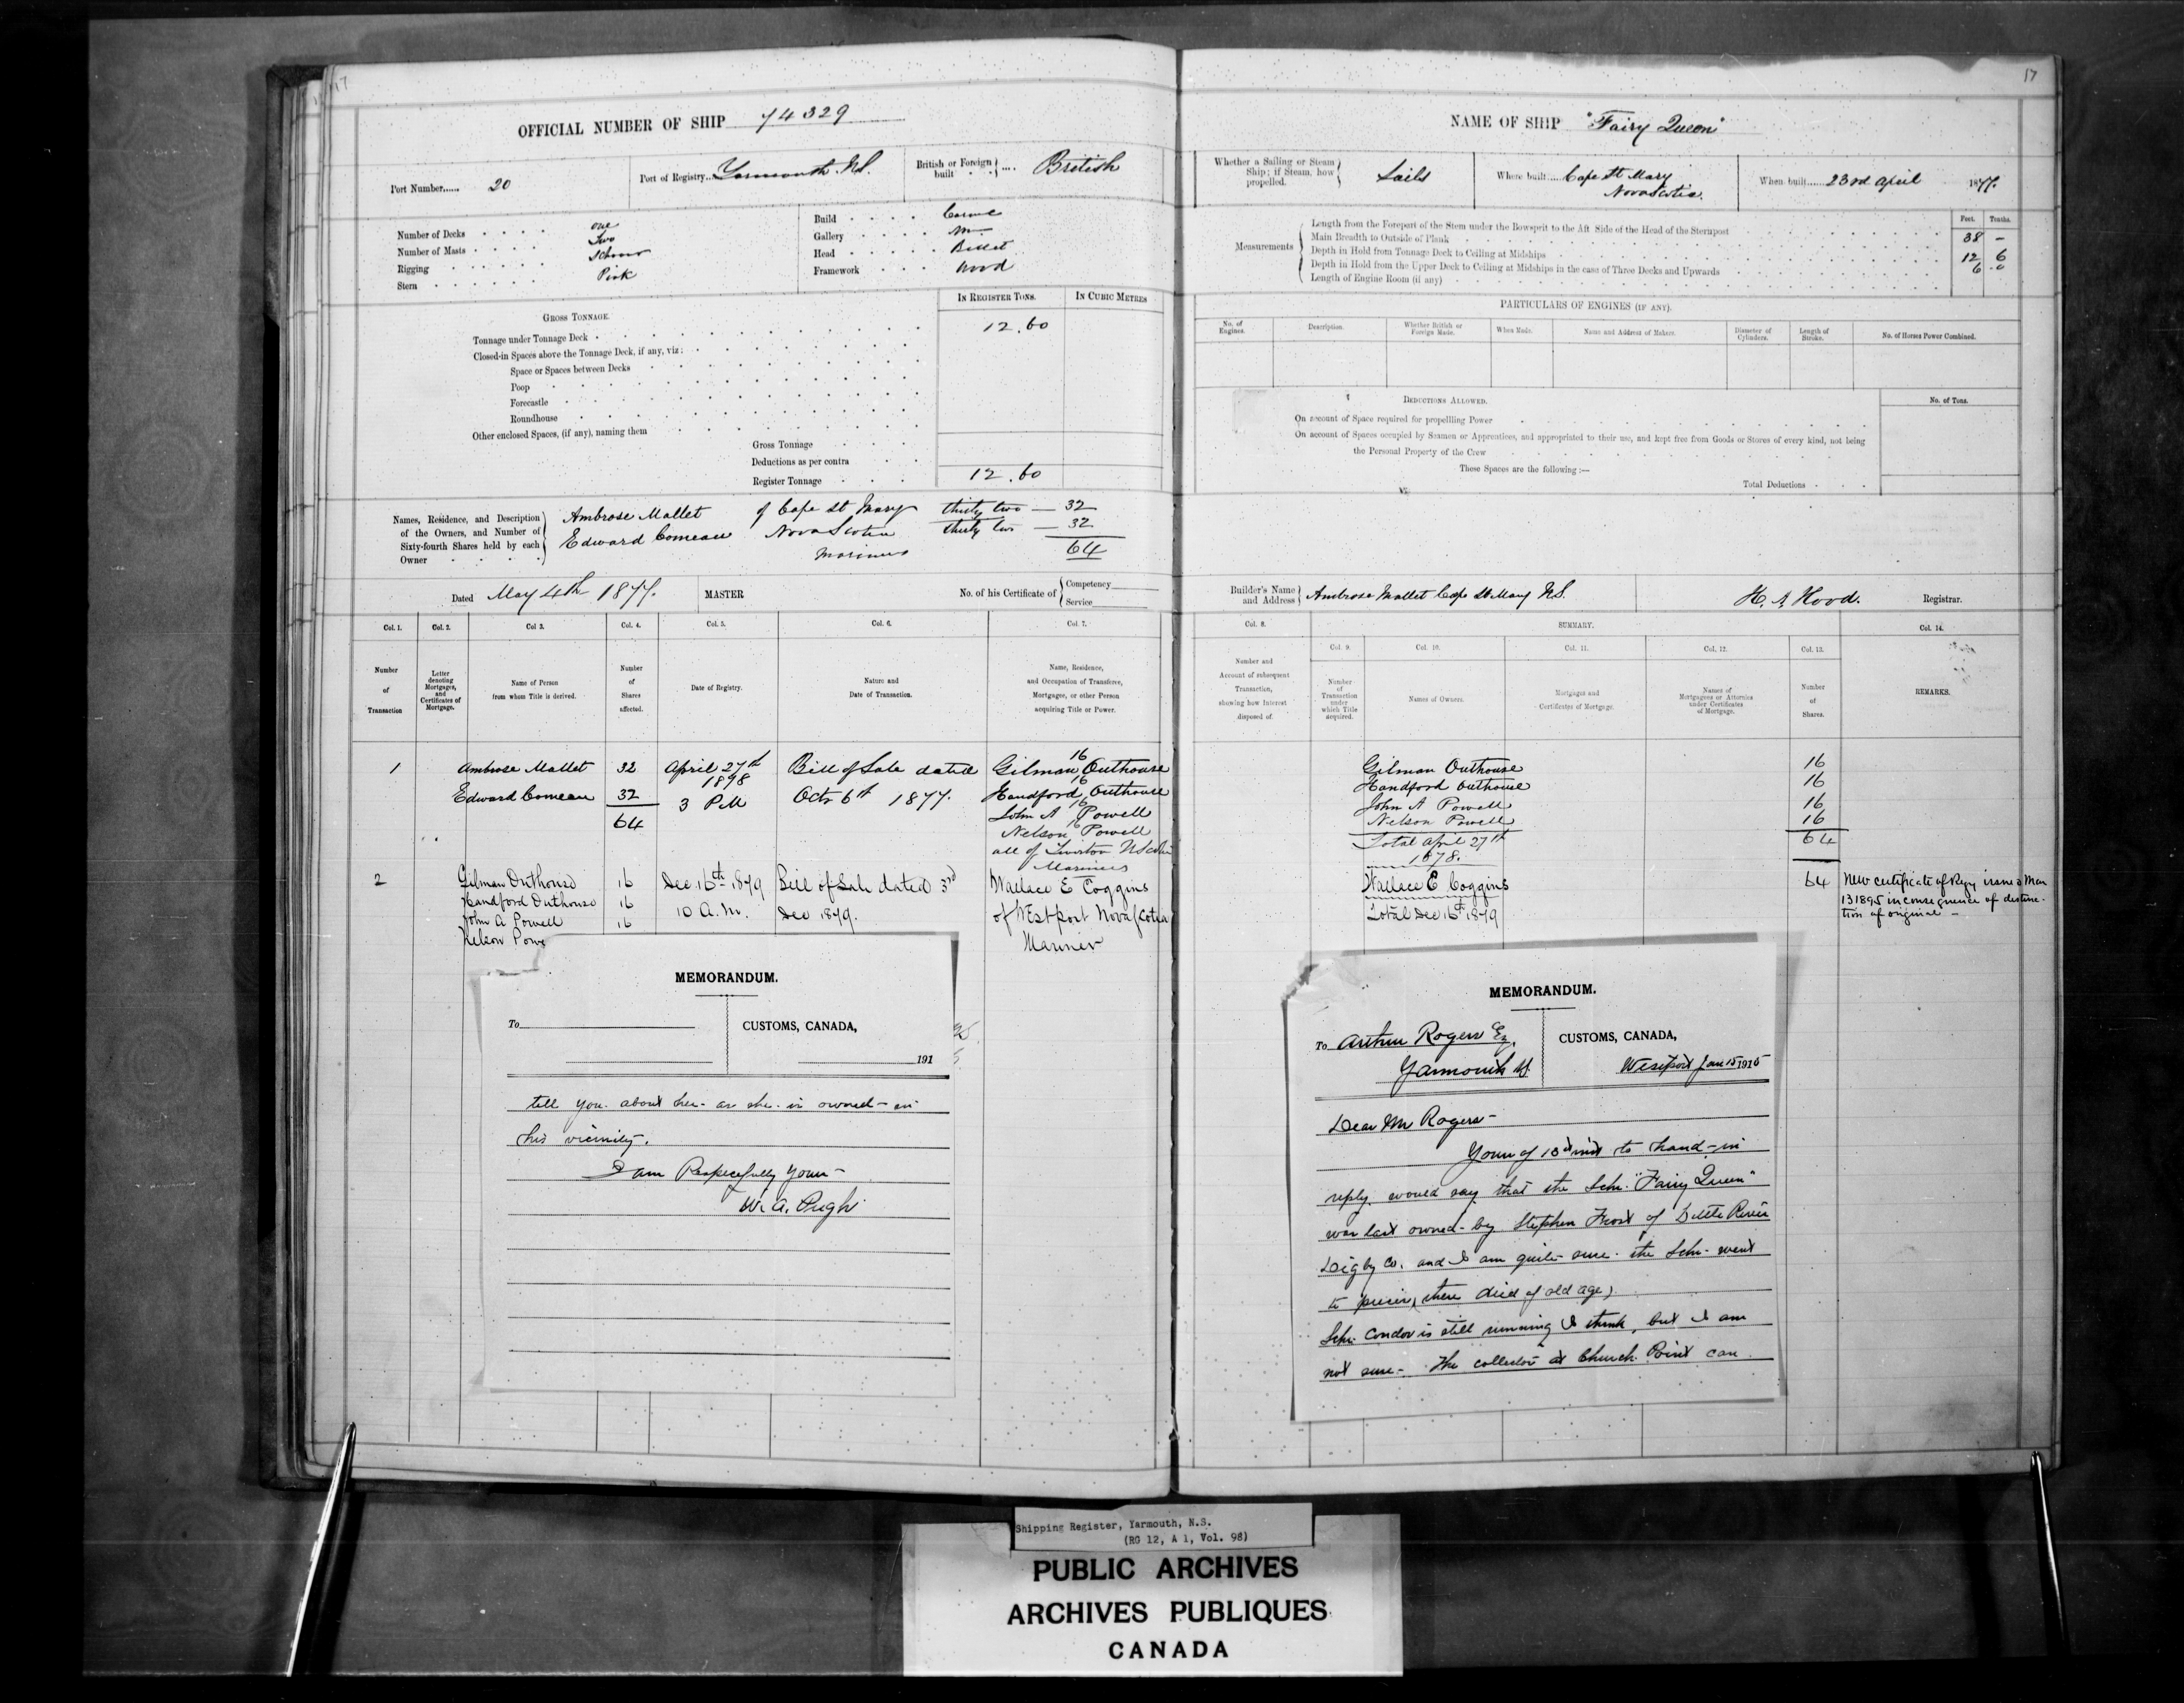 17
OFFICIAL NUMBER OF SHIP 74329
Port Number...... 20
Port of Registry.. Yarmouth N.S.
British or Foreign built .... British
Number of Decks one
Number of Masts Two
Rigging Schooner
Stern Pink
Build Carvel
Gallery
Head Billet
Framework Wood
IN REGISTER TONS.
IN CUBIC METRES
GROSS TONNAGE.
Tonnage under Tonnage Deck 12.60
Closed-in Spaces above the Tonnage Deck, if any, viz:
Space or Spaces between Decks
Poop
Forecastle
Roundhouse
Other enclosed Spaces, (if any), naming them
Gross Tonnage
Deductions as per contra
Register Tonnage 12.60
Names, Residence, and Description of the Owners, and Number of Sixty-fourth Shares held by each Owner
Ambrose Mallet of Cape St Mary thirty two — 32
Edward Comeau Nova Scotia thirty two — 32
Mariners 64
Dated May 4th 1877.
MASTER
No. of his Certificate of { Competency
Service
Col. 1. Col. 2. Col 3. Col. 4. Col. 5. Col. 6. Col. 7.
Number of Transaction
Letter denoting Mortgages, and Certificates of Mortgage.
Name of Person from whom Title is derived.
Number of Shares affected.
Date of Registry.
Nature and Date of Transaction.
Name, Residence, and Occupation of Transferee, Mortgagee, or other Person acquiring Title or Power.
1 Ambrose Mallet 32 April 27th Bill of Sale dated Gilman 16 Outhouse
1898
Edward Comeau 32 3 PM Octr 6th 1877. Handford 16 Outhouse
64 John A 16 Powell
Nelson 16 Powell
all of Tiverton N Scotia
Mariners
2 Gilman Outhouse 16 Dec 16th 1879 Bill of Sale dated 3rd Wallace E Coggins
Handford Outhouse 16 10 A.M. Dec 1879. of Westport Nova Scotia
John A Powell 16 Mariner
Nelson Powe
MEMORANDUM.
To
CUSTOMS, CANADA,
191
tell you about her - as she is owned - in
his vicinity.
I am Respecfully Yours -
W. A. Pugh
17
NAME OF SHIP "Fairy Queen"
Whether a Sailing or Steam Ship; if Steam, how propelled. Sails
Where built..... Cape St Mary
Nova Scotia.
When built...... 23rd April 1877.
Measurements
Feet. Tenths.
Length from the Forepart of the Stem under the Bowsprit to the Aft Side of the Head of the Sternpost 38 –
Main Breadth to Outside of Plank 12 6
Depth in Hold from Tonnage Deck to Ceiling at Midships 6 .0
Depth in Hold from the Upper Deck to Ceiling at Midships in the case of Three Decks and Upwards
Length of Engine Room (if any)
PARTICULARS OF ENGINES (IF ANY).
No. of Engines.
Description.
Whether British or Foreign Made.
When Made.
Name and Address of Makers.
Diameter of Cylinders.
Length of Stroke.
No. of Horses Power Combined.
DEDUCTIONS ALLOWED.
No. of Tons.
On account of Space required for propellling Power
On account of Spaces occupied by Seamen or Apprentices, and appropriated to their use, and kept free from Goods or Stores of every kind, not being
the Personal Property of the Crew
These Spaces are the following :—
Total Deductions
Builder's Name and Address } Ambrose Mallet Cape St Mary N.S.
H. A. Hood. Registrar.
Col. 8. SUMMARY. Col. 14.
Col. 9. Col. 10. Col. 11. Col. 12. Col. 13.
Number and Account of subsequent Transaction, showing how Interest disposed of.
Number of Transaction under which Title acquired.
Names of Owners.
Mortgages and Certificates of Mortgage.
Names of Mortgagees or Attornies under Certificates of Mortgage.
Number of Shares.
REMARKS.
Gilman Outhouse 16
Handford Outhouse 16
John A Powell 16
Nelson Powell 16
Total April 27th 64
1878.
Wallace E Coggins 64
Total Dec 16th 1879
New certificate of Regy issued Mar
13 1895 in consequence of destruc-
tion of original –
MEMORANDUM.
To Arthur Rogers Esq,
Yarmouth NS.
CUSTOMS, CANADA,
Westport Jan 15 1915
Dear Mr Rogers -
Yours of 13th inst to hand - in
reply would say that the Schr. "Fairy Queen"
was last owned - by Stephen Frost of Little River
Digby Co. and I am quite sure the Schr. went
to pieces there (died of old age)
Schr. Condor is still running I think, but I am
not sure - The collector at Church Point can
Shipping Register, Yarmouth, N.S.
(RG 12, A 1, Vol. 98)
PUBLIC ARCHIVES
ARCHIVES PUBLIQUES
CANADA